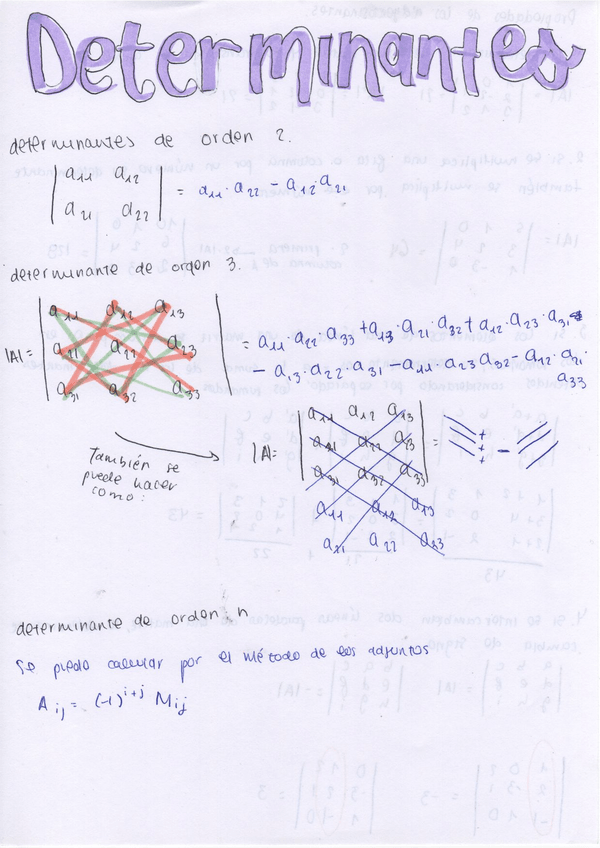 Determinantes
determinantes de orden 2.
| a11 a12 |
| a21 a22 | = a11 · a22 - a12 · a21
determinante de orden 3.
|A| = | a11 a12 a13 |
| a21 a22 a23 |
| a31 a32 a33 |
= a11 · a22 · a33 + a13 · a21 · a32 + a12 · a23 · a31
- a13 · a22 · a31 - a11 · a23 a32 - a12 · a21 ·
a33
También se
puede hacer
como:
|A| = | a11 a12 a13 |
| a21 a22 a23 |
| a31 a32 a33 |
a11 a12 a13
a21 a22 a23
= + + + -
determinante de orden n
Se puede calcular por el método de los adjuntos
A ij = (-1)^i+j Mij